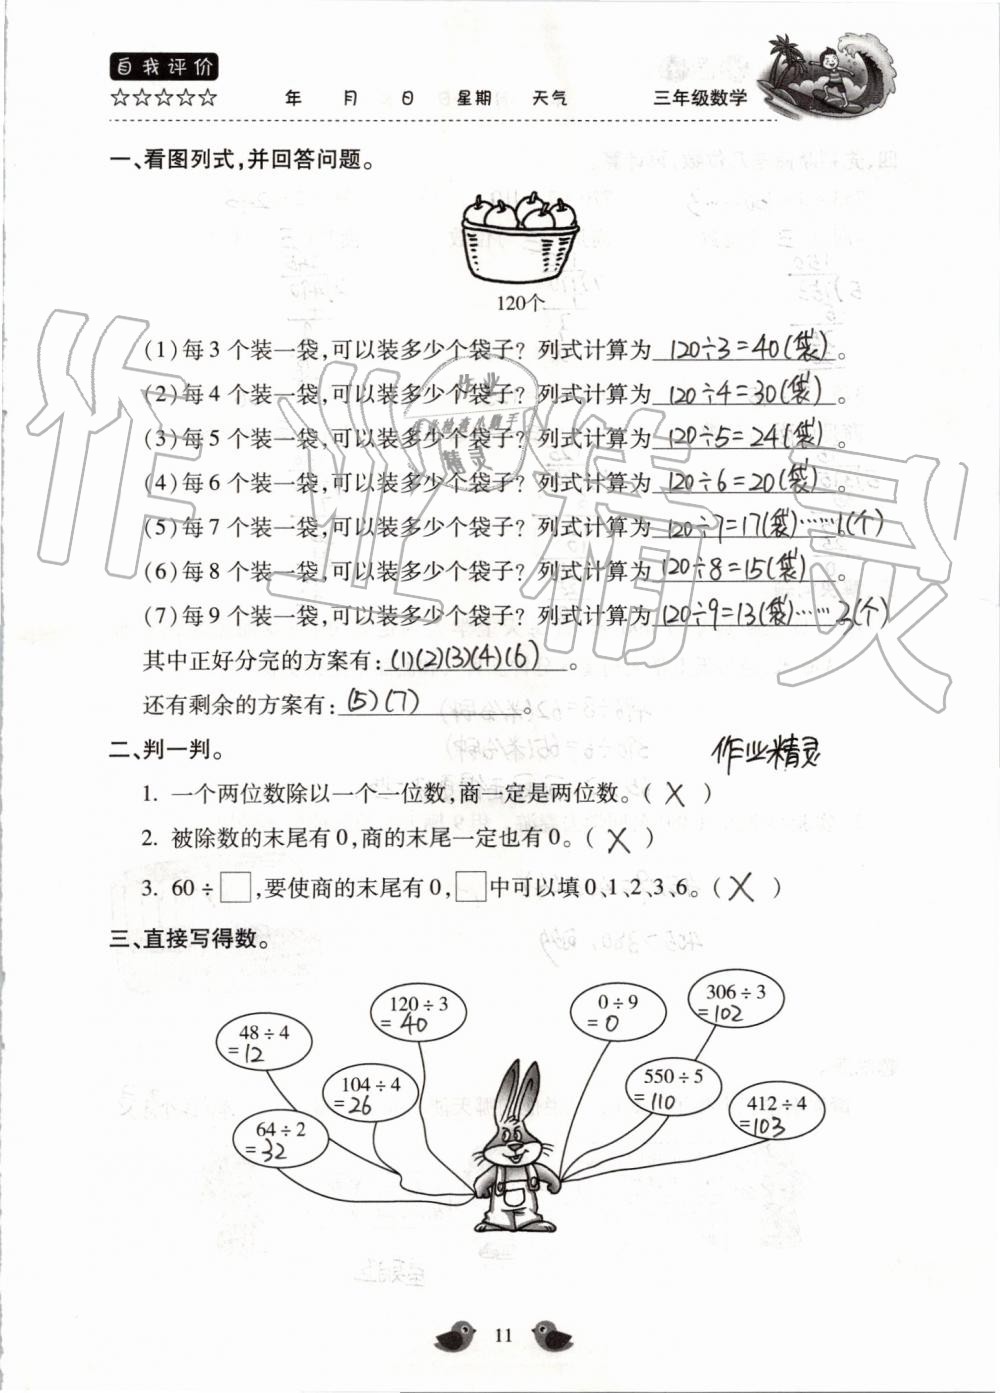 自我评价
☆☆☆☆☆ 年 月 日 星期 天气 三年级数学
一、看图列式,并回答问题。
120个
(1)每3个装一袋,可以装多少个袋子?列式计算为 120÷3=40(袋)。
(2)每4个装一袋,可以装多少个袋子?列式计算为 120÷4=30(袋)。
(3)每5个装一袋,可以装多少个袋子?列式计算为 120÷5=24(袋)。
(4)每6个装一袋,可以装多少个袋子?列式计算为 120÷6=20(袋)。
(5)每7个装一袋,可以装多少个袋子?列式计算为 120÷7=17(袋)……1(个)
(6)每8个装一袋,可以装多少个袋子?列式计算为 120÷8=15(袋)。
(7)每9个装一袋,可以装多少个袋子?列式计算为 120÷9=13(袋)……3(个)
其中正好分完的方案有:(1)(2)(3)(4)(6)。
还有剩余的方案有:(5)(7)。
二、判一判。
作业精灵
1. 一个两位数除以一个一位数,商一定是两位数。( X )
2. 被除数的末尾有0,商的末尾一定也有0。( X )
3. 60÷□,要使商的末尾有0,□中可以填0、1、2、3、6。( X )
三、直接写得数。
48÷4
=12
120÷3
=40
0÷9
=0
306÷3
=102
104÷4
=26
550÷5
=110
64÷2
=32
412÷4
=103
11
作业精灵
作业
作业检查小助手
精灵